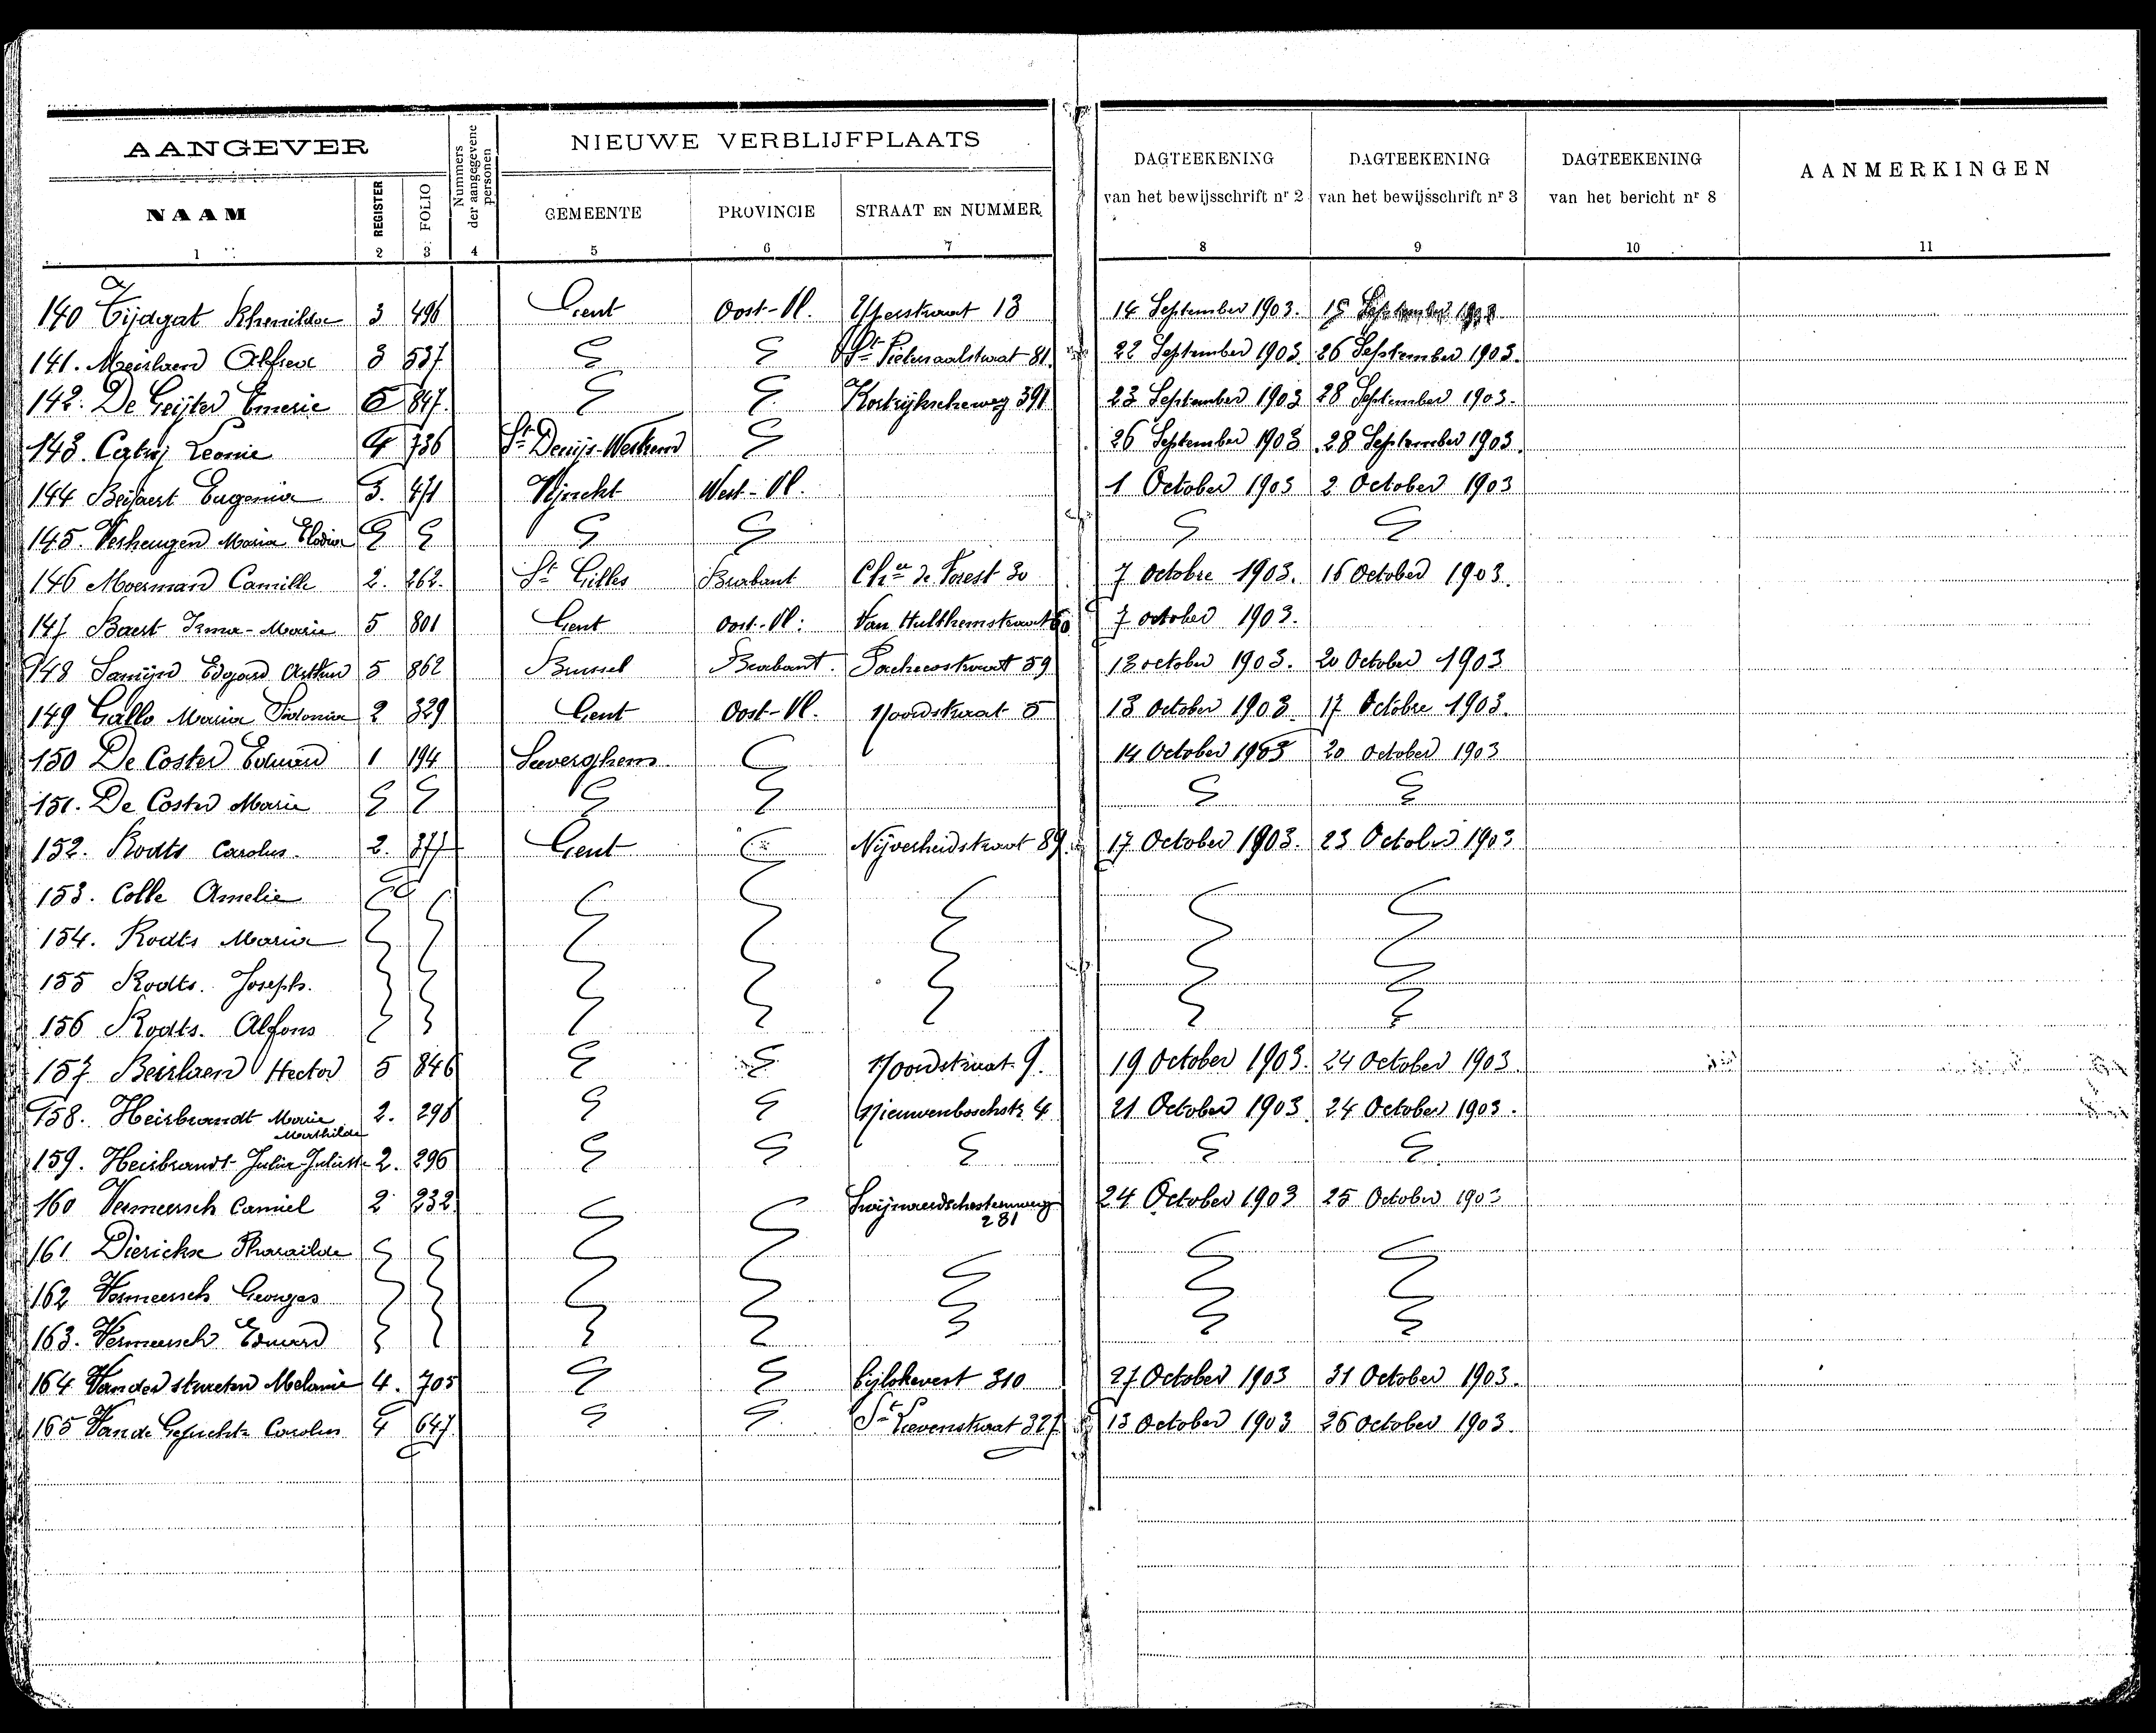 AANGEVER
Nummers der aangegevene personen
NIEUWE VERBLIJFPLAATS
DAGTEEKENING van het bewijsschrift nr 2
DAGTEEKENING van het bewijsschrift nr 3
DAGTEEKENING van het bericht nr 8
AANMERKINGEN
NAAM REGISTER FOLIO GEMEENTE PROVINCIE STRAAT EN NUMMER
1 2 3 4 5 6 7 8 9 10 11
140 Tijdgat 3 496 Gent Oost-Vl. 13 14 September 1903. 15 September 1903
141. Alfred 3 537 St Pietersaalstraat 81 22 September 1903. 26 September 1903.
142. De Geijter Emerie 5 847. Kortrijkscheweg 391 23 September 1903 28 September 1903.
143. Leonie 4 736 St Denijs-Westrem 26 September 1903 28 September 1903.
144 Beijaert Eugenia 3. 471 Vijncht West-Vl. 1 October 1903 2 October 1903
145. Verheugen Maria Elodia
146 Moerman Camille 2. 262. St Gilles Brabant Chée de Forest 30 7 Octobre 1903. 16 October 1903.
147 Baert Irma-Marie 5 801 Gent Oost-Vl: Van Hulthemstraat 60 7 october 1903.
148 Samijn Edgard Arthur 5 862 Brussel Brabant. Pachecostraat 59 13 october 1903. 20 October 1903
149 Gallo Maria Sidonia 2 329 Gent Oost-Vl. Noordstraat 5 13 October 1903. 17 Octobre 1903.
150 De Coster Eduard 1 194 Seeverghem 14 October 1903 20 October 1903
151. De Coster Marie
152. Rodts Carolus. 2. 377 Gent Nijverheidstraat 89. 17 October 1903. 23 October 1903
153. Colle Amelie
154. Rodts Maria
155 Rodts. Joseph.
156 Rodts. Alfons
157 Beirlaen Hector 5 846 Noordstraat 9. 19 October 1903. 24 October 1903.
158. Heirbrandt Marie Mathilde 2. 298 Nieuwenboschstr 4 21 October 1903 24 October 1903.
159. Heirbrandt Julia Juliette 2. 296
160 Vermeersch Camiel 2 232 Zwijnaerdschesteenweg 281 24 October 1903 25 October 1903
161 Dierickx Pharailde
162 Vermeersch Georges
163. Vermeersch Eduard
164 Van der straeten Melanie 4. 705 Bijlokevest 310 27 October 1903 31 October 1903.
165 Van de Ghuchte Carolus 4 647. St Lievenstraat 327 13 October 1903 26 October 1903.